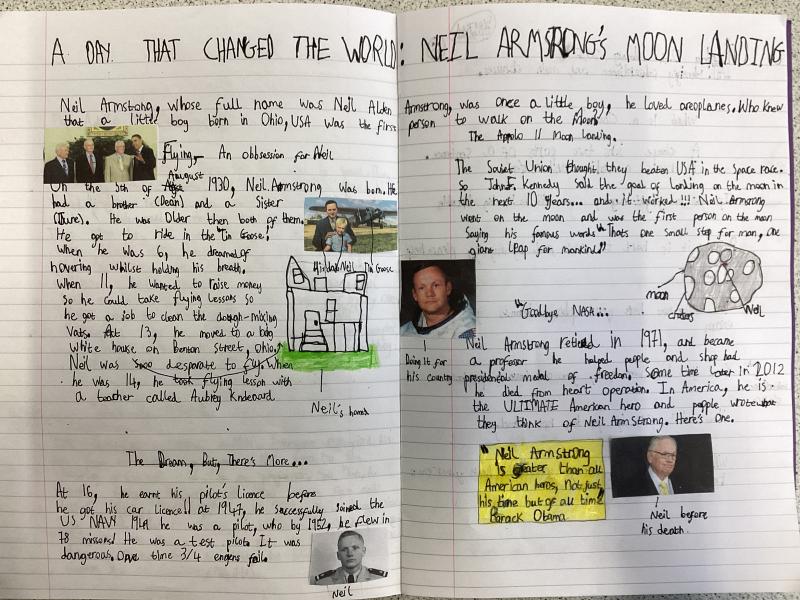 A DAY THAT CHANGED THE WORLD: NEIL ARMSRONG's MOON LANDING
Neil Armstrong, whose full name was Neil Alden Armstrong, was once a little boy, he loved areoplanes. Who knew
that a little boy born in Ohio, USA was the first person to walk on the Moon
Flying, An obbsession for Neil
On the 5th of August 1930, Neil Armstrong was born. He
had a brother (Dean) and a Sister
(June). He was Older then both of them.
He got to ride in the 'Tin Goose'.
When he was 6, he dreamed of
hovering whilst holding his breath.
When 11, he wanted to raise money
So he could take flying Lessons so
he got a job to clean the dough-mixing
Vats. At 13, he moved to a big
white house on Benton street, Ohio.
Neil was sooo desparate to fly. When
he was 14, he took flying lesson with
a teacher called Aubrey Kndenard
Neil Tin Goose
Neil's home
The Dream, But, There's More...
At 16, he earnt his pilot's licence before
he got his car licence!! at 1947, he successfully Joined the
US NAVY he was a pilot, who by 1952, he flew in
78 missons! He was a test pilot. It was
dangerous, One time 3/4 engens fail.
Neil
The Appolo 11 Moon Landing.
The Soviet Union thought they beaten USA in the Space race.
So John F. Kennedy said the goal of Landing on the moon in
the next 10 years... and it worked!!! Neil Armstrong
went on the moon and was the first person on the moon
Saying his famous words "Thats one Small step for man, One
giant Leap for mankind"
moon
Neil
"Goodbye NASA...
Doing it for
his country
Neil Armstrong retired in 1971, and became
a professor he helped people and shop had
presidental medal of freedom. Some time later in 2012
he died from heart operation. In America, he is
the ULTIMATE American hero and people wrote what
they think of Neil Armstrong. Here's one.
"Neil Armstrong
is greater than all
American heros, Not just
his time but of all time"
Barack Obama
Neil before
his death.